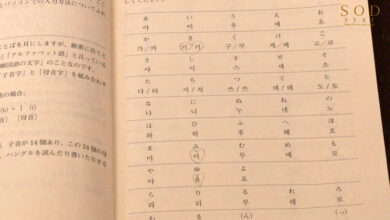 SOD
star
してください。
あ い う え お
아 이 우 에 오
か き く け こ
가/카 기/키 구/쿠 게/케 고/코
さ し す せ そ
사 시 스 세 소
た ち つ て と
다/타 지/치 쓰/쓰 데/테 도/토
な に ぬ ね の
나 니 누 네 노
は ひ ふ へ ほ
하 히 후 헤 호
ま み む め も
마 미 무 메 모
や ゆ よ
야 유 요
ら り る れ ろ
라 리 루 레 로
わ を (ん) (っ)
とパソコンでの入力方法についてふれ
ことばを耳にしますが、厳密に言うと
」「アルファベット語」と言っている
韓国語の文字」のことなのです。
「子音字」と「母音字」を組み合わせ
の場合、
(i)
[母音]
、子音が14個あり、この24個の母
、ハングルを読んだり書いたりする